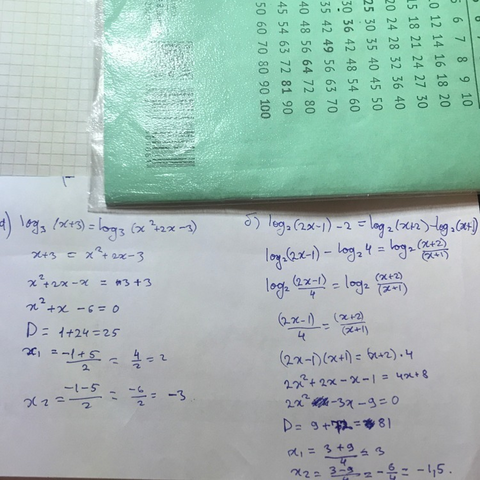 5 6 7 8 9 10
10 12 14 16 18 20
15 18 21 24 27 30
20 24 28 32 36 40
25 30 35 40 45 50
30 36 42 48 54 60
35 42 49 56 63 70
40 48 56 64 72 80
45 54 63 72 81 90
50 60 70 80 90 100
а) log₃(x+3) = log₃(x²+2x-3)
x+3 = x²+2x-3
x²+2x-x = 3+3
x²+x-6=0
D = 1+24=25
x₁ = \frac{-1+5}{2} = \frac{4}{2} = 2
x₂ = \frac{-1-5}{2} = \frac{-6}{2} = -3
б) log₂(2x-1)-2 = log₂(x+2)-log₂(x+1)
log₂(2x-1) - log₂4 = log₂\frac{(x+2)}{(x+1)}
log₂\frac{(2x-1)}{4} = log₂\frac{(x+2)}{(x+1)}
\frac{(2x-1)}{4} = \frac{(x+2)}{(x+1)}
(2x-1)(x+1) = (x+2)·4
2x²+2x-x-1 = 4x+8
2x²-3x-9=0
D = 9+72=81
x₁ = \frac{3+9}{4} = 3
x₂ = \frac{3-9}{4} = -\frac{6}{4} = -1,5.